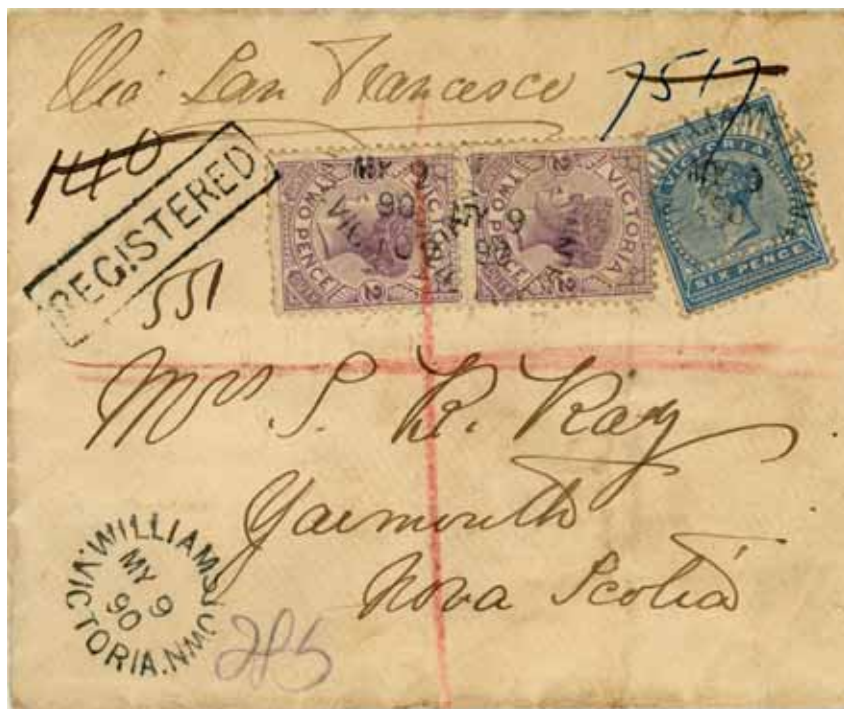 Via San Francesco
7517
140
REGISTERED
551
VICTORIA
TWO PENCE
2 2
MY 9
90
VICTORIA
TWO PENCE
2 2
MY 9
90
VICTORIA
SIX PENCE
MY 9
90
Mrs S. K. Kay
Yarmouth
Nova Scotia
WILLIAMSTOWN
MY 9
90
VICTORIA.